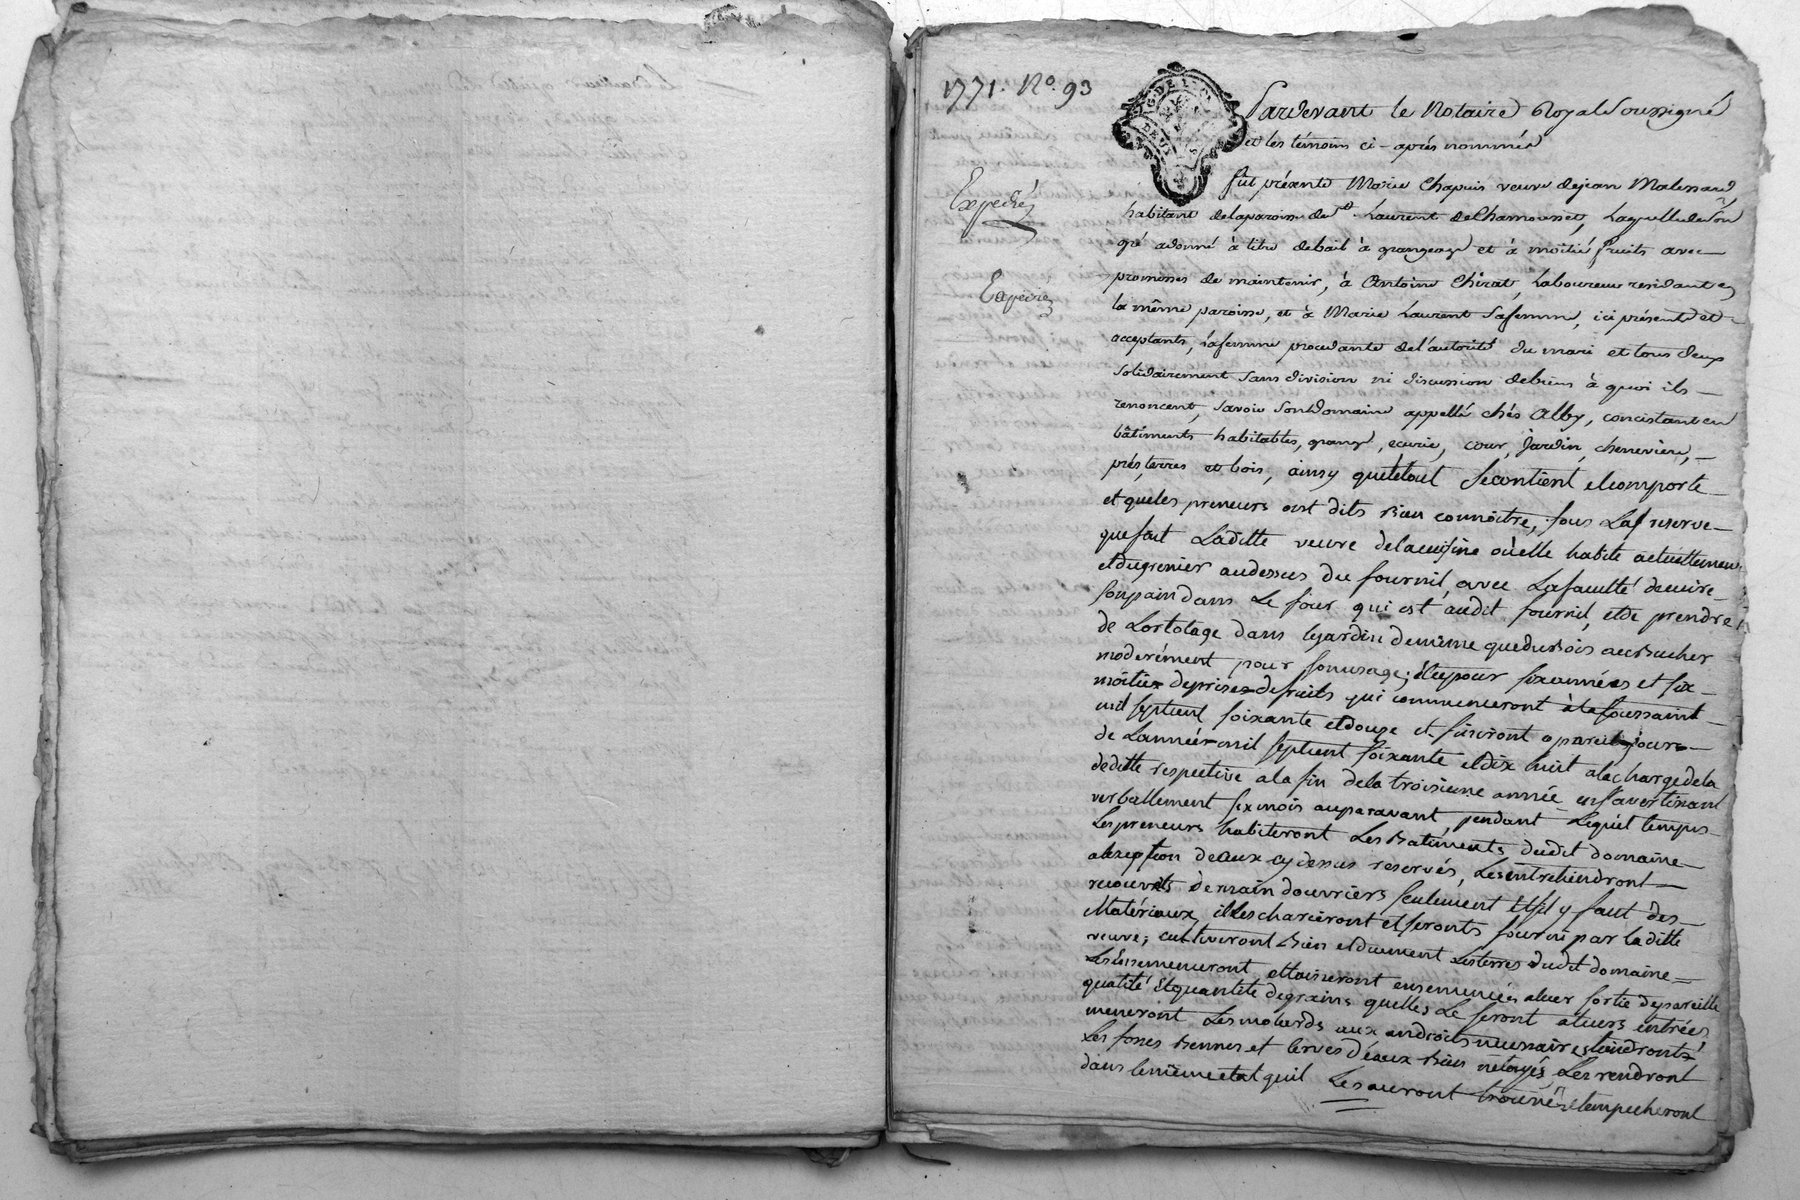 1771. No. 93
Pardevant le Notaire Royal Soussigné
et les témoins ci-après nommés
Expedié
fut présente Marie Chapuis veuve dejean
habitant delaparoisse de St. Laurent deChamousset, Laquelle de son
gré adonné à titre debail à grangeage et à moitié fruits avec
promesses de maintenir, à Antoine Chirat, Laboureur residant en
Expedié
la même paroisse, et à Marie Laurent Safemme, ici présents et
acceptants, Lafemme procedante del'autorité du mari et tous deux
Solidairement Sans division ni discussion debiens à quoi ils
renoncent, Savoir Sondomaine appellé chés Alby, concistant en
bâtiments habitables, grange, ecurie, cour, jardin, cheneviere,
prés, terres et bois, ainsy queletout Secontient et comporte
et queles preneurs ont dits Bien connoitre, sous La reserve
quefait Laditte veuve delacuisine oùelle habite actuellement
et dugrenier audessus du fournil, avec Lafaculté decuire
sonpain dans Le four qui est audit fournil, et de prendre
de Lortolage dans lejardin demême queduBois auBucher
moderément pour sonusage; Etcepour sixannées et six
moitiés deprises defruits qui commenceront à la toussaint
mil septcent soixante et douze et finiront apareil jour
de Lannée mil septcent soixante et dix huit alachargedela
deditte respective ala fin dela troisieme année en s'avertissant
verballement six mois auparavant, pendant Lequel temps
Les preneurs habiteront Les Batiments dudit domaine
alexeption deceux cydessus reservés, Lesentretiendront
recouverts demain douvriers seulement Etsil y faut des
Matériaux, ils Les charieront et seronts fourni par laditte
veuve; cultiveront Bien et duement Lesterres dudit domaine
Lesensemenceront et laisseront ensemencées aleur sortie depareille
qualité Etquantité degrains quelles Le seront aleurs entrées
meneront Les aux endroits necessaires tiendronts
Les fosses et serves d'eaux Bien netoyés Les rendront
dans lemêmeetat quil Lesauront trouvé; Etempecheront